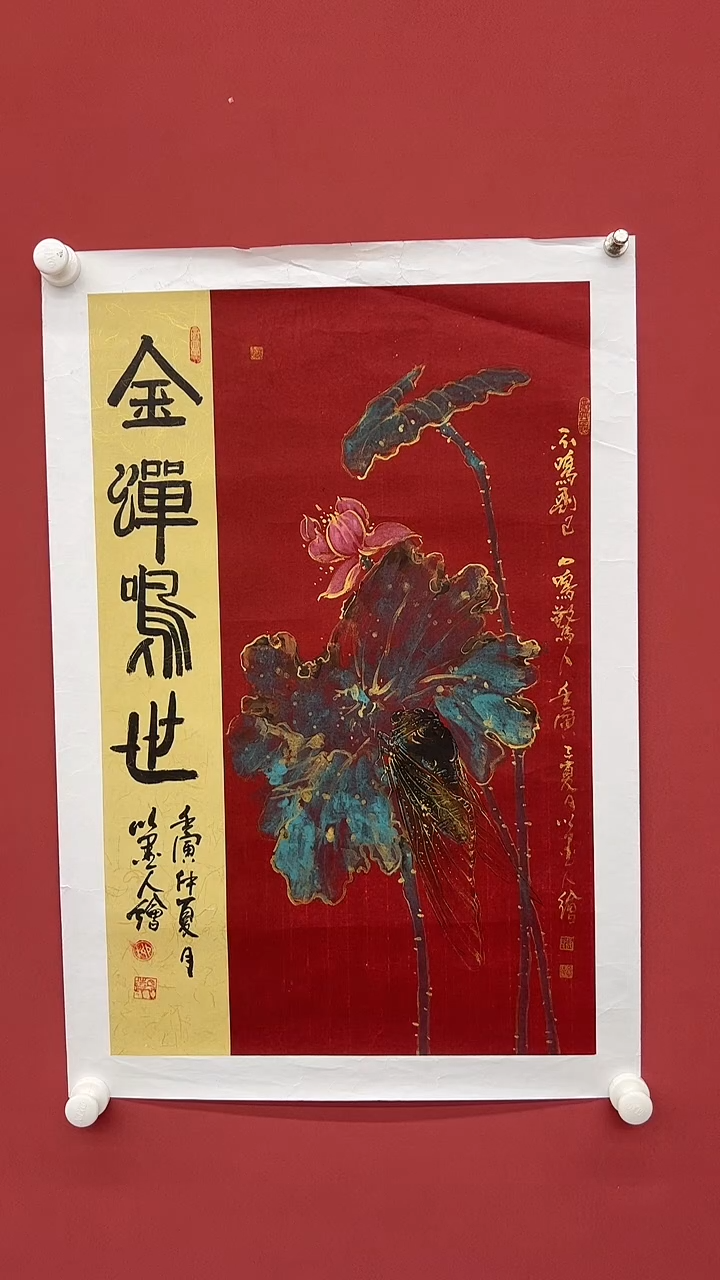 不鳴則已 一鳴驚人 壬寅之夏月以墨人繪
金蟬鳴世
壬寅仲夏月
以墨人繪